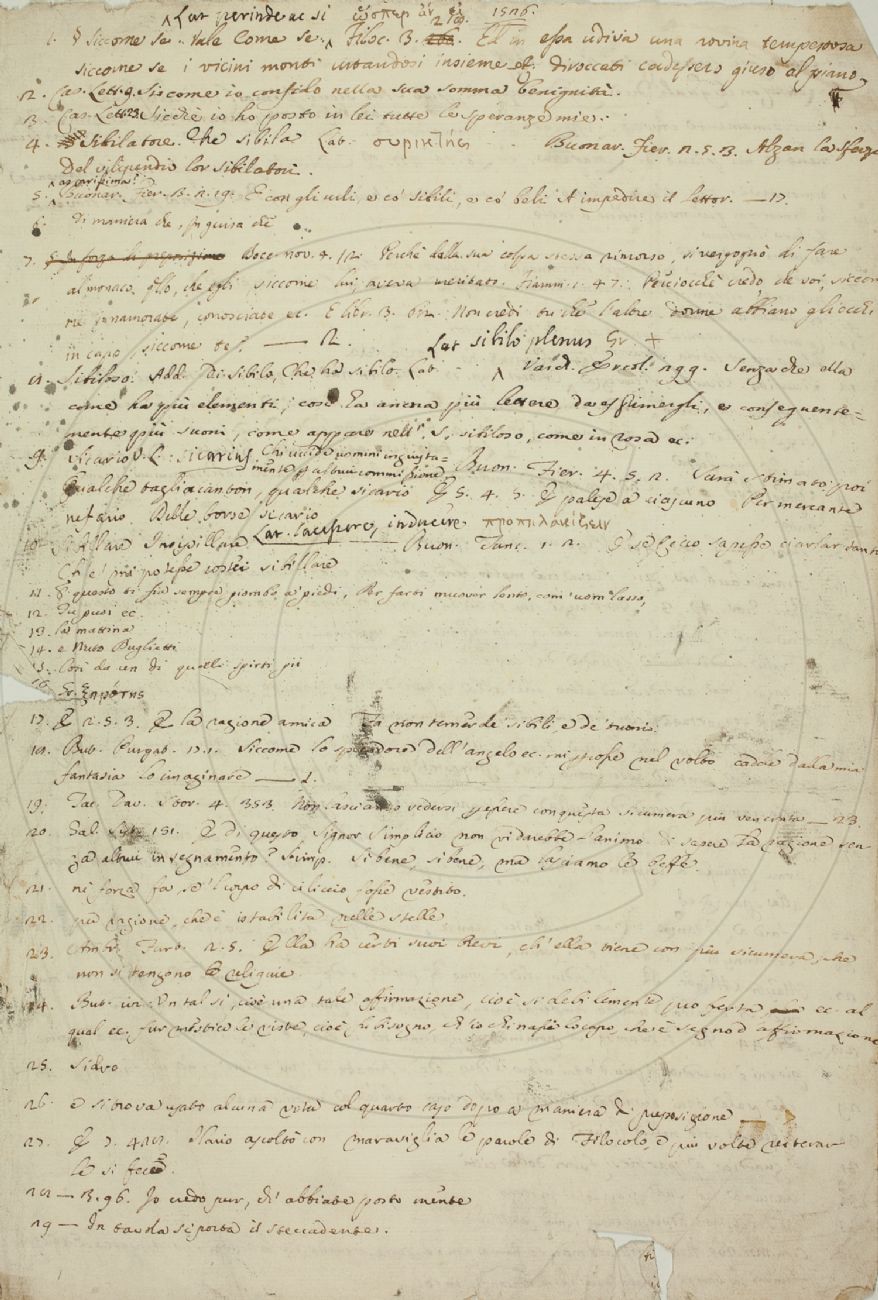 Lat perinde ac si ὥσπερ ἂν 1526.
1. § Siccome se. Vale Come se. Filoc. 3. Ed in essa udiva una rovina tempestosa
siccome se i vicini monti urtandosi insieme diroccati cadessero giuso al piano
2. Cas. Lett. 9. Siccome io confido nella sua somma benignità.
3. Cas. Lett. Sicchè io ho posto in lei tutte le speranze mie.
4. Sibilatore. Che sibila Lat. συρικτής Buonar. Fier. 2. 5. 3. Alzan la sferza
Del vilipendio lor sibilatori.
asprissima!
5. Buonar. Fier. E con gli urli, e co' sibili, e co' beli A impedire il lettor. — 17.
6. Di maniera che, In guisa che
7. Bocc. nov. 4. 12. Perchè dalla sua colpa stessa rimorso, si vergognò di fare
al monaco quello, che egli siccome lui aveva meritato. Fiamm. 1. 47. Perciocchè credo, che voi, siccome
me innamorate, conosciate ec. E libr. 3. Non credi tu che l'altre donne abbiano gli occhi
in capo, siccome te? — 2.
Lat sibilo plenus Gr. +
Sibiloso. Add. Di sibilo, Che ha sibilo. Lat. Varch. Ercol. 299. Senzachè ella
come ha più elementi, così ha ancora più lettere da essumergli, e conseguente=
mente più suoni, come appare nell' S, sibiloso, come in rosa ec.
9. Sicario V. L. sicarius Chi uccide uomini ingiusta=
mente per altrui commissione Buon. Fier. 4. 5. 2. Sarà stimato poi
Qualche tagliacanton, qualche sicario E 5. 4. 5. E palese a ciascuno Per mercante
nefario Delle borse sicario
10. Sibillare Insipillare Lat. lacessere, inducere προπηλακίζειν Buon. Tanc. 1. 2. E se Cecco sapesse ciarlar tanto
Ch' e' mi potesse costei sibillare
11. E questo ti fia sempre piombo a' piedi, Per farti muover lento, com' uom lasso,
12. Tu puoi ec
13. la mattina
14. e Nuto Buglietti
15. Così da un di quelli spirti pii
16 Gr. ξηρότης
17. E 2. 5. 3. E la ragione amica Fa non temer de' sibili, e de' tuoni.
18. But. Purgat. 17. 1. Siccome lo splendore dell'angelo ec. mi percosse nel volto cadde dalla mia
fantasia lo imaginare — 2.
19. Tac. Dav. Stor. 4. 353. Non lasciamo vedersi perdere con questa sicumera più vencinta — 23.
20. Gal. Sist. 151. E di questo Signor Simplicio non vi darebbe l'animo di sapere la ragione sen=
za altrui insegnamento? Simp. Sibene, sibene, ma lasciamo le beffe.
21. nè forza fa, se 'l corpo di ciliccio fosse vestito.
22. per ragione, che è istabilita nelle stelle
23. Ambr. Furt. 2. 5. Ella ha certi suoi Brevi, ch' ella tiene con più sicumera, che
non si tengono le reliquie
24. But. ivi Un tal si, cioè una tale affirmazione, cioè si debilemente pro ferta, ec. al
qual ec. fur mestier le viste, cioè fu bisogno, che io chinasse lo capo, che è segno d'affirmazione
25. Sidvo
26. e si trova usato alcuna volta col quarto caso dopo a maniera di preposizione
27. E 7. 421. Ilario ascoltò con maraviglia le parole di Filocolo, e più volte reiterar
le si fece.
28 — 3. 96. Io credo pur, ch' abbiate posto mente
29 — In tavola si porta il steccadente.